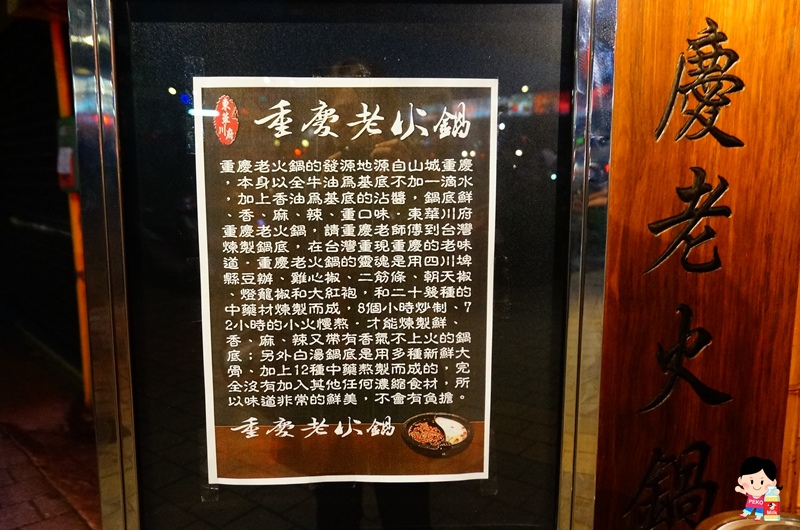 東華川府
重慶老火鍋
重慶老火鍋的發源地源自山城重慶
，本身以全牛油爲基底不加一滴水
，加上香油爲基底的沾醬，鍋底鮮
、香、麻、辣、重口味．東華川府
重慶老火鍋，請重慶老師傅到台灣
煉製鍋底，在台灣重現重慶的老味
道．重慶老火鍋的靈魂是用四川埤
縣豆瓣、雞心椒、二筋條、朝天椒
、燈籠椒和大紅袍，和二十幾種的
中藥材煉製而成，8個小時炒制、7
2小時的小火慢熬．才能煉製鮮、
香、麻、辣又帶有香氣不上火的鍋
底；另外白湯鍋底是用多種新鮮大
骨、加上12種中藥熬製而成的，完
全沒有加入其他任何濃縮食材，所
以味道非常的鮮美，不會有負擔。
重慶老火鍋
慶老火鍋
PEKO
Milk